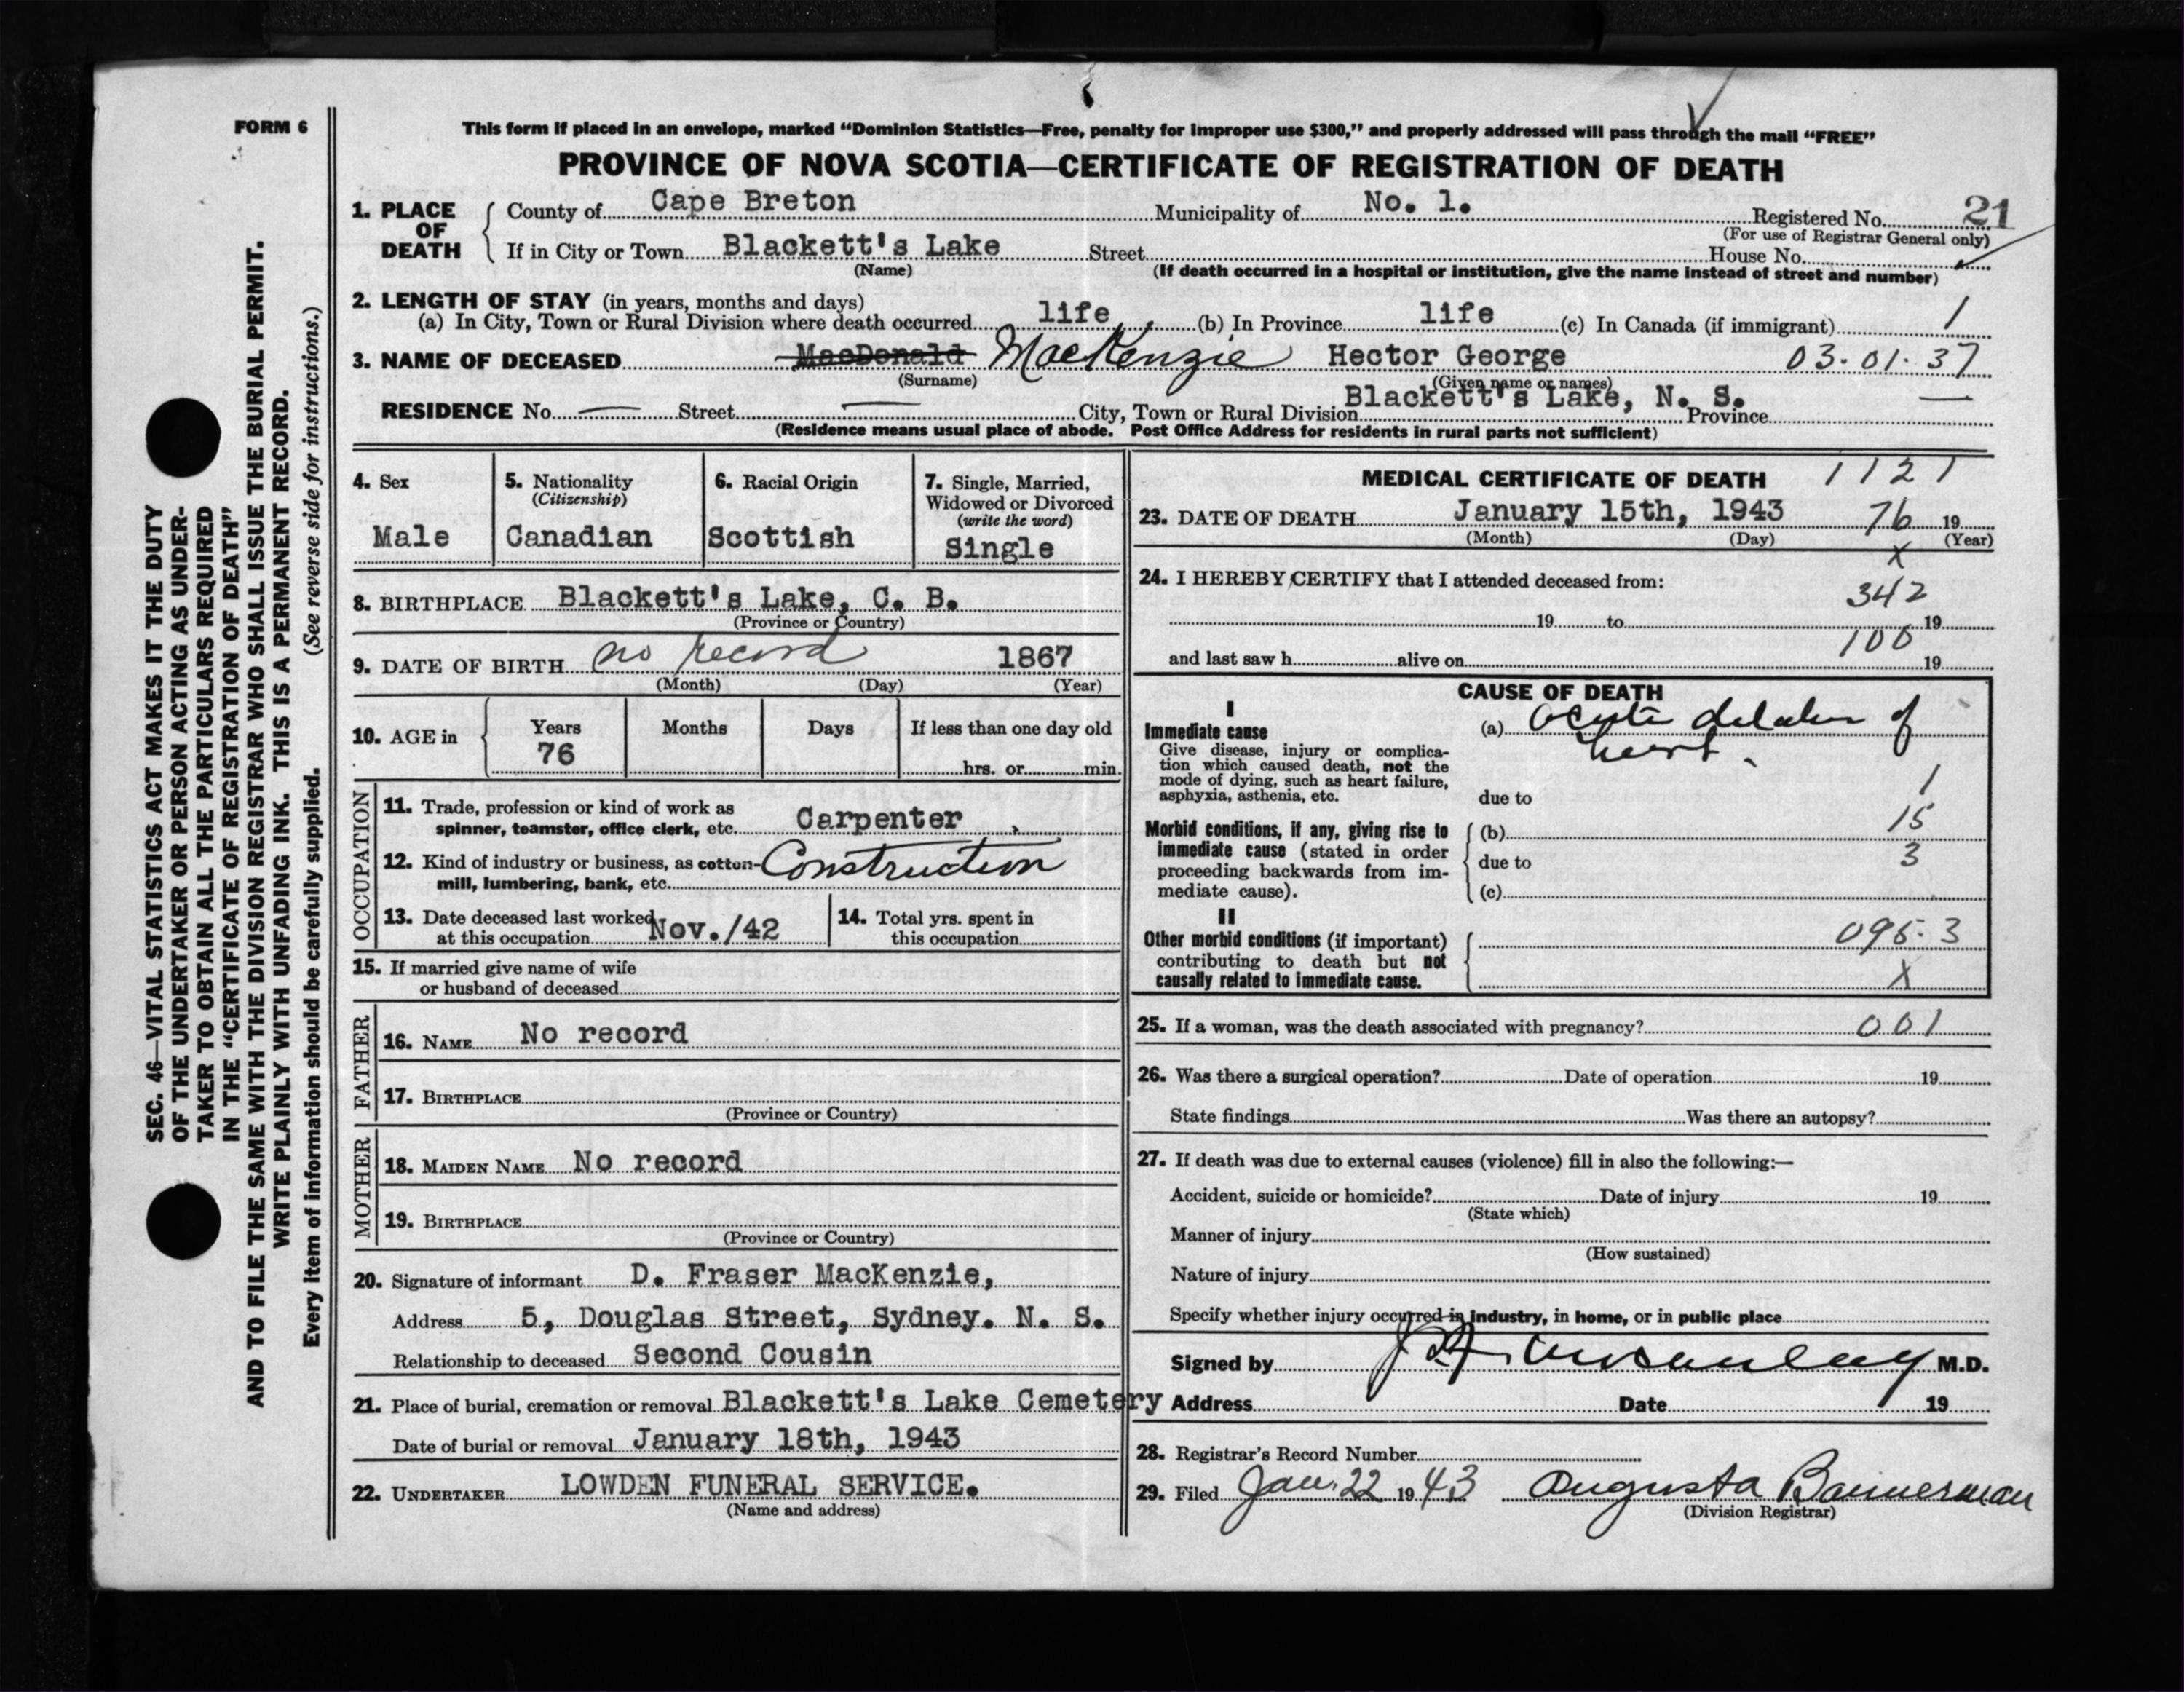 FORM 6
This form if placed in an envelope, marked “Dominion Statistics—Free, penalty for improper use $300,” and properly addressed will pass through the mail “FREE”
PROVINCE OF NOVA SCOTIA—CERTIFICATE OF REGISTRATION OF DEATH
1. PLACE OF DEATH
County of Cape Breton Municipality of No. 1. Registered No. 21
(For use of Registrar General only)
If in City or Town Blackett's Lake Street House No.
(Name) (If death occurred in a hospital or institution, give the name instead of street and number)
2. LENGTH OF STAY (in years, months and days)
(a) In City, Town or Rural Division where death occurred life (b) In Province life (c) In Canada (if immigrant) 1
3. NAME OF DECEASED MacDonald MacKenzie Hector George 03-01-37
(Surname) (Given name or names)
RESIDENCE No. — Street — City, Town or Rural Division Blackett's Lake, N. S. Province —
(Residence means usual place of abode. Post Office Address for residents in rural parts not sufficient)
4. Sex
Male
5. Nationality
(Citizenship)
Canadian
6. Racial Origin
Scottish
7. Single, Married,
Widowed or Divorced
(write the word)
Single
8. BIRTHPLACE Blackett's Lake, C. B.
(Province or Country)
9. DATE OF BIRTH no record 1867
(Month) (Day) (Year)
10. AGE in
Years Months Days If less than one day old
76 hrs. or min.
OCCUPATION
11. Trade, profession or kind of work as
spinner, teamster, office clerk, etc. Carpenter
12. Kind of industry or business, as cotton-
mill, lumbering, bank, etc. Construction
13. Date deceased last worked
at this occupation Nov./42
14. Total yrs. spent in
this occupation
15. If married give name of wife
or husband of deceased
FATHER
16. NAME No record
17. BIRTHPLACE
(Province or Country)
MOTHER
18. MAIDEN NAME No record
19. BIRTHPLACE
(Province or Country)
20. Signature of informant D. Fraser MacKenzie,
Address 5, Douglas Street, Sydney. N. S.
Relationship to deceased Second Cousin
21. Place of burial, cremation or removal Blackett's Lake Cemetery
Date of burial or removal January 18th, 1943
22. UNDERTAKER LOWDEN FUNERAL SERVICE.
(Name and address)
MEDICAL CERTIFICATE OF DEATH 1121
23. DATE OF DEATH January 15th, 1943 76 19
(Month) (Day) (Year)
X
24. I HEREBY CERTIFY that I attended deceased from:
342
19 to 19
100
and last saw h alive on 19
CAUSE OF DEATH
I
Immediate cause
Give disease, injury or complica-
tion which caused death, not the
mode of dying, such as heart failure,
asphyxia, asthenia, etc.
(a) Acute dilation of
heart.
1
due to
15
Morbid conditions, if any, giving rise to
immediate cause (stated in order
proceeding backwards from im-
mediate cause).
(b)
due to 3
(c)
II
Other morbid conditions (if important)
contributing to death but not
causally related to immediate cause.
095-3
X
25. If a woman, was the death associated with pregnancy? 001
26. Was there a surgical operation? Date of operation 19
State findings Was there an autopsy?
27. If death was due to external causes (violence) fill in also the following:—
Accident, suicide or homicide? Date of injury 19
(State which)
Manner of injury
(How sustained)
Nature of injury
Specify whether injury occurred in industry, in home, or in public place
Signed by M.D.
Address Date 19
28. Registrar's Record Number
29. Filed Jan. 22 1943 Augusta Bannerman
(Division Registrar)
SEC. 46—VITAL STATISTICS ACT MAKES IT THE DUTY
OF THE UNDERTAKER OR PERSON ACTING AS UNDER-
TAKER TO OBTAIN ALL THE PARTICULARS REQUIRED
IN THE “CERTIFICATE OF REGISTRATION OF DEATH”
AND TO FILE THE SAME WITH THE DIVISION REGISTRAR WHO SHALL ISSUE THE BURIAL PERMIT.
WRITE PLAINLY WITH UNFADING INK. THIS IS A PERMANENT RECORD.
Every item of information should be carefully supplied. (See reverse side for instructions.)